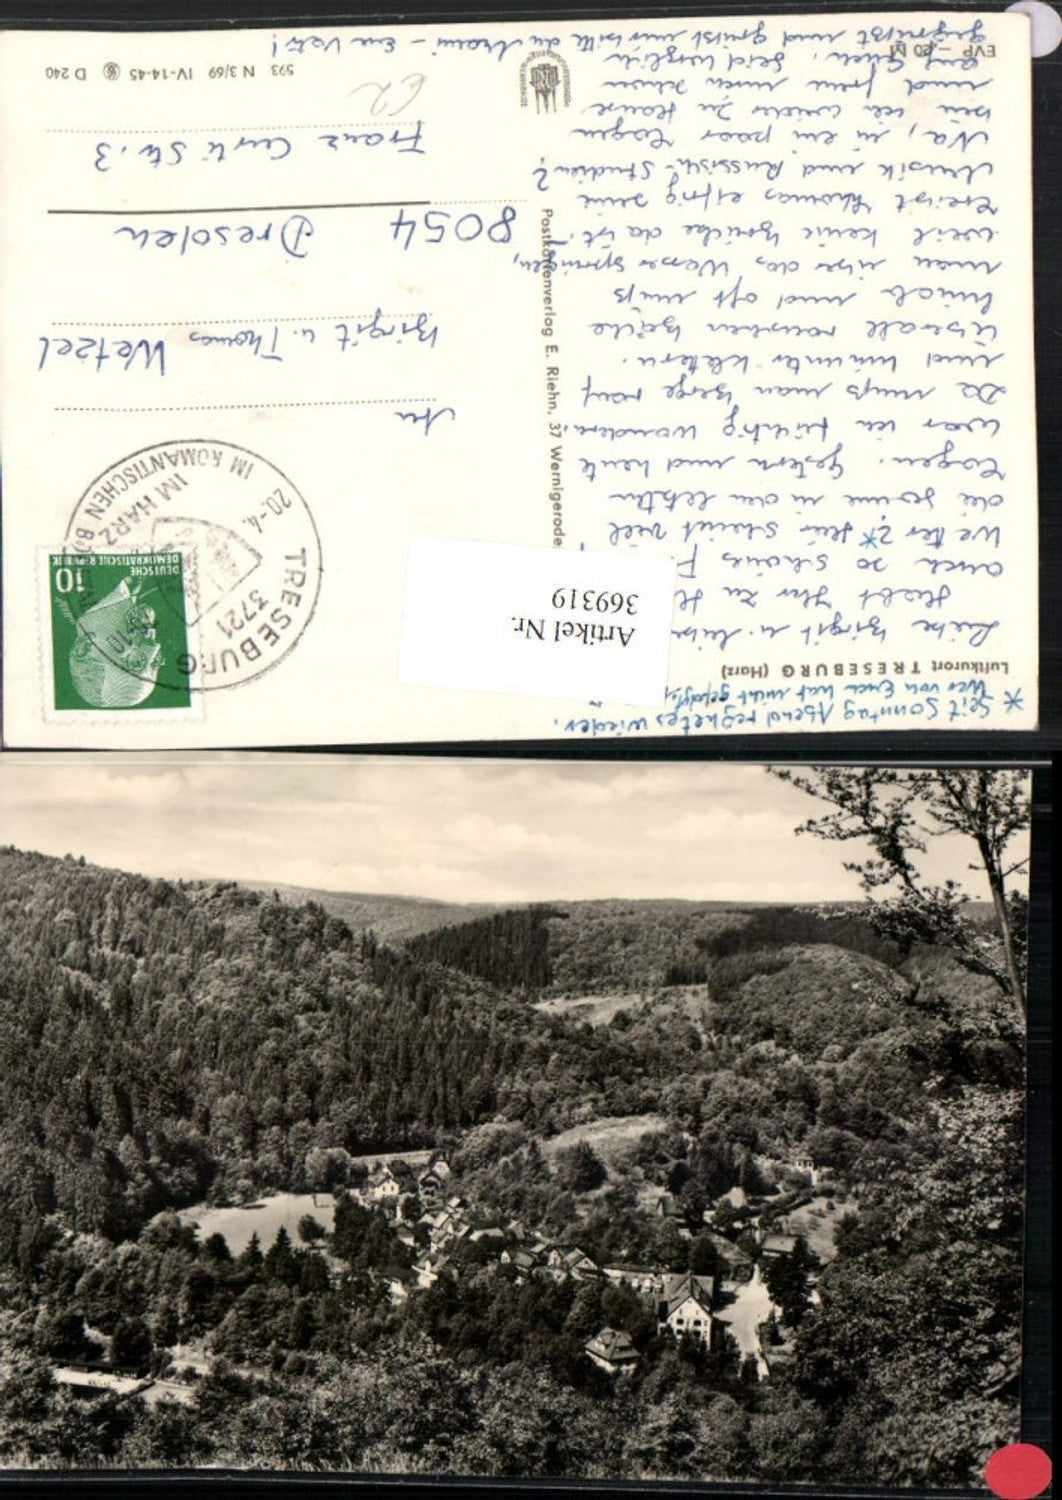 * Seit Sonntag Abend regnet es wieder.
Wer von Euch hat nicht gefolgt?
Luftkurort TRESEBURG (Harz)
Liebe Birgit u. lieber
Habt Ihr zu
auch so schönes
Wetter?* Hier scheint viel
die Sonne in den letzten
Tagen. Gestern und heute
war ich tüchtig wandern.
Da muß man Berge rauf
und hinunter klettern.
Überall rauschen Bäche
hinab und oft muß
man über das Wasser springen,
weil keine Brücke da ist.
Treibt Thomas eifrig seine
Musik und Russisch-Studien?
Na, in ein paar Tagen
bin ich wieder zu Hause
und freue mich schon
auf Euch. Seid herzlich
gegrüßt und grüßt mir bitte die Mami – Eu Vati!
EVP – 20 M
Artikel Nr.
369319
Postkartenverlag E. Riehn, 37 Wernigerode
DEUTSCHE
DEMOKRATISCHE REPUBLIK
10
TRESEBURG
3721
20.-4.
IM HARZ
IM ROMANTISCHEN
An
Birgit u. Thomas Wetzel
8054 Dresden
Franz Curti Str. 3
€2
593 N 3/69 IV-14-45 D 240